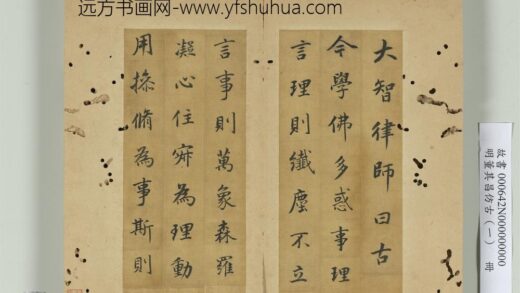 远方书画网-www.yfshuhua.com
大智律師曰古
今學佛多惑事理
言理則纖塵不立
言事則萬象森羅
凝心住寂為理動
用捴脩為事斯則
故書 000642N000000000
明董其昌仿古（一） 冊